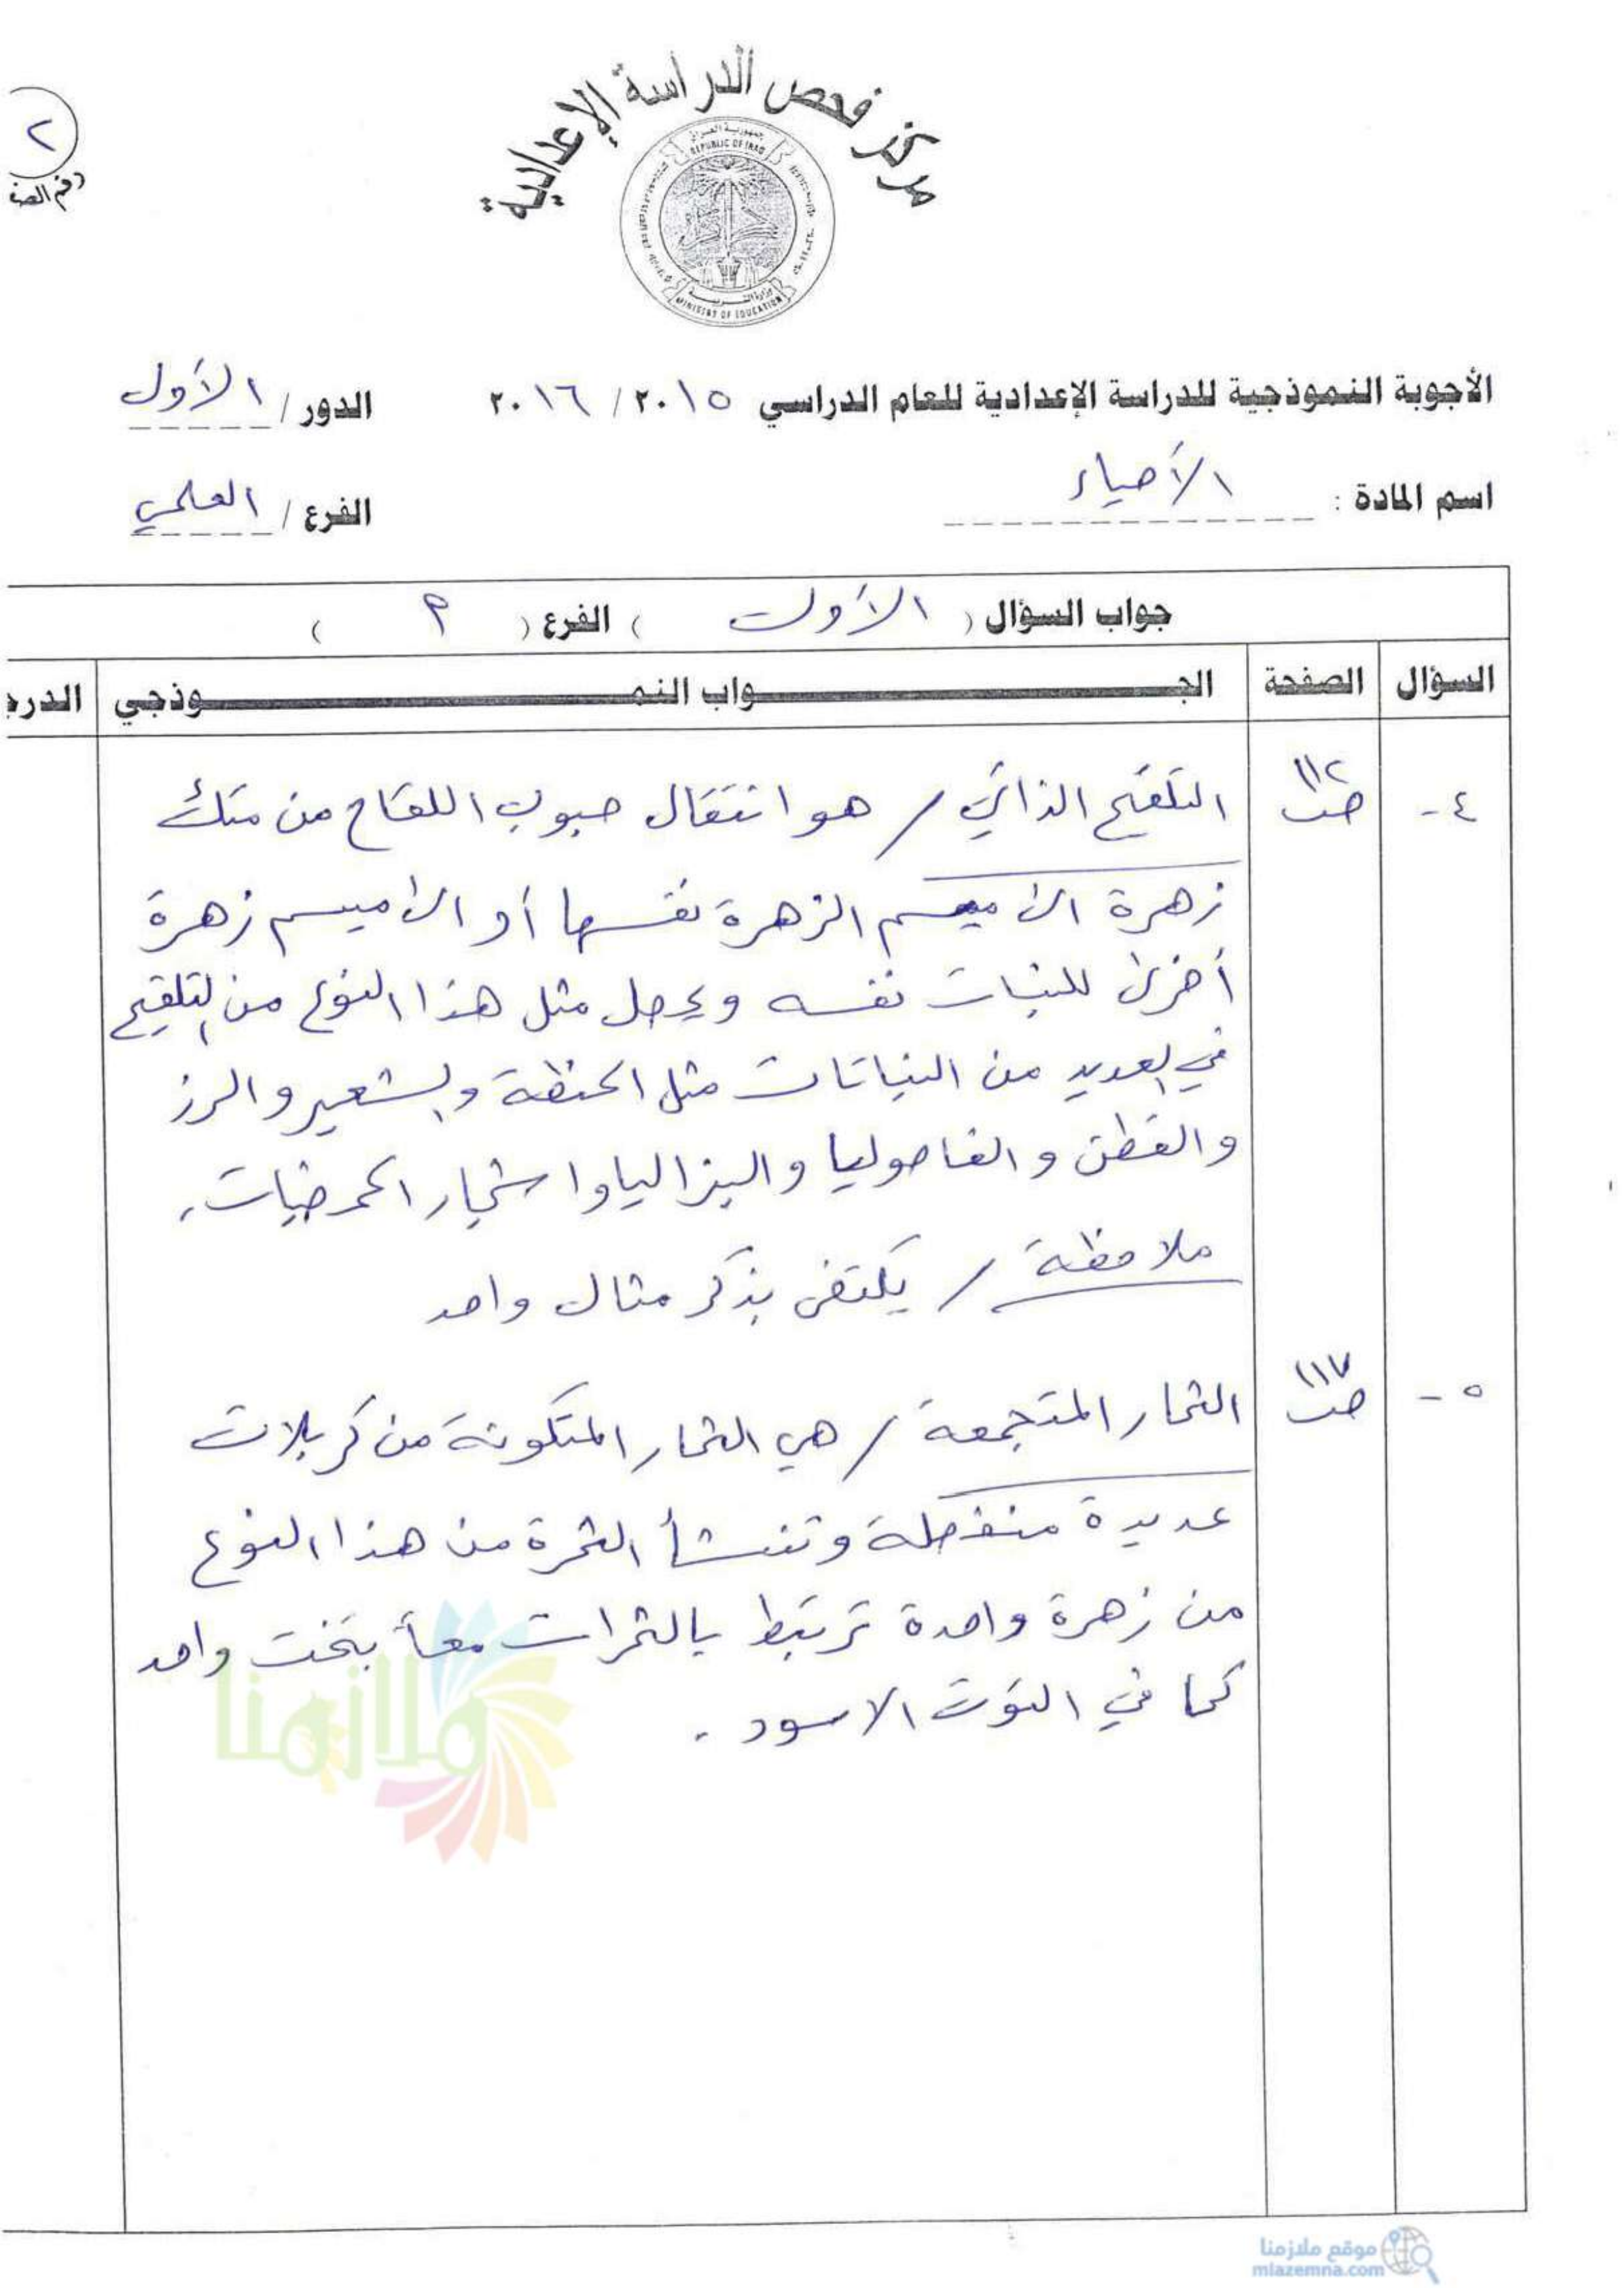 مركز فحص الدراسة الإعدادية
جمهورية العراق
REPUBLIC OF IRAQ
وزارة التربية
MINISTRY OF EDUCATION
٢
رقم الصف
الأجوبة النموذجية للدراسة الإعدادية للعام الدراسي ٢٠١٥ / ٢٠١٦ الدور / الأول
اسم المادة : الأحياء الفرع / العلمي
جواب السؤال ( الأول ) الفرع ( م )
السؤال الصفحة الجــواب النمــوذجي الدرج
٤- ص ١١٢ التلقيح الذاتي / هو انتقال حبوب اللقاح من متك
زهرة الى ميسم الزهرة نفسها أو الى ميسم زهرة
أخرى للنبات نفسه ويحصل مثل هذا النوع من التلقيح
في العديد من النباتات مثل الحنطة والشعير والرز
والقطن والفاصوليا والبزاليا واشجار الحمضيات.
ملاحظة / يكتفى بذكر مثال واحد
٥- ص ١١٧ الثمار المتجمعة / هي الثمار المتكونة من كربلات
عديدة منفصلة وتنشأ الثمرة من هذا النوع
من زهرة واحدة ترتبط بالثمرات معاً بتخت واحد
كما في التوت الاسود .
ملازمنا
موقع ملازمنا
mlazemna.com